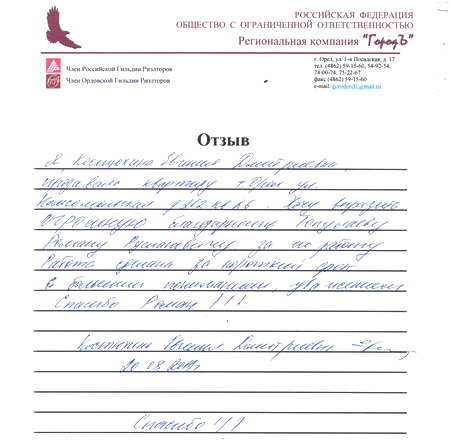 РОССИЙСКАЯ ФЕДЕРАЦИЯ
ОБЩЕСТВО С ОГРАНИЧЕННОЙ ОТВЕТСТВЕННОСТЬЮ
Региональная компания "ГородЪ"
Член Российской Гильдии Риэлторов
Член Орловской Гильдии Риэлторов
г. Орел, ул 1-я Посадская, д. 17
тел. (4862) 59-15-60, 54-92-54,
74-00-74, 75-22-67
факс (4862) 59-15-60
e-mail
Отзыв
Я, Евгения Дмитриевна,
продавала квартиру г. Орел ул.
Комсомольская Хочу выразить
огромную благодарность
Роману Руслановичу за работу
Работа сделана за короткий срок
с большим пониманием,
Спасибо Роман !!!
Евгения Дмитриевна
Спасибо !!!